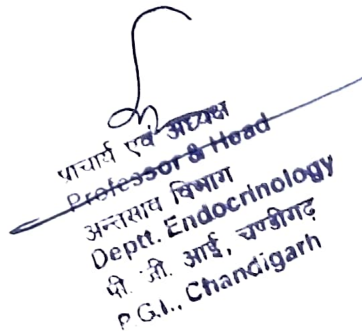 प्राचार्य एवं अध्यक्ष
Professor & Head
अन्तस्राव विभाग
Deptt. Endocrinology
पी. जी. आई, चण्डीगढ़
P.G.I., Chandigarh